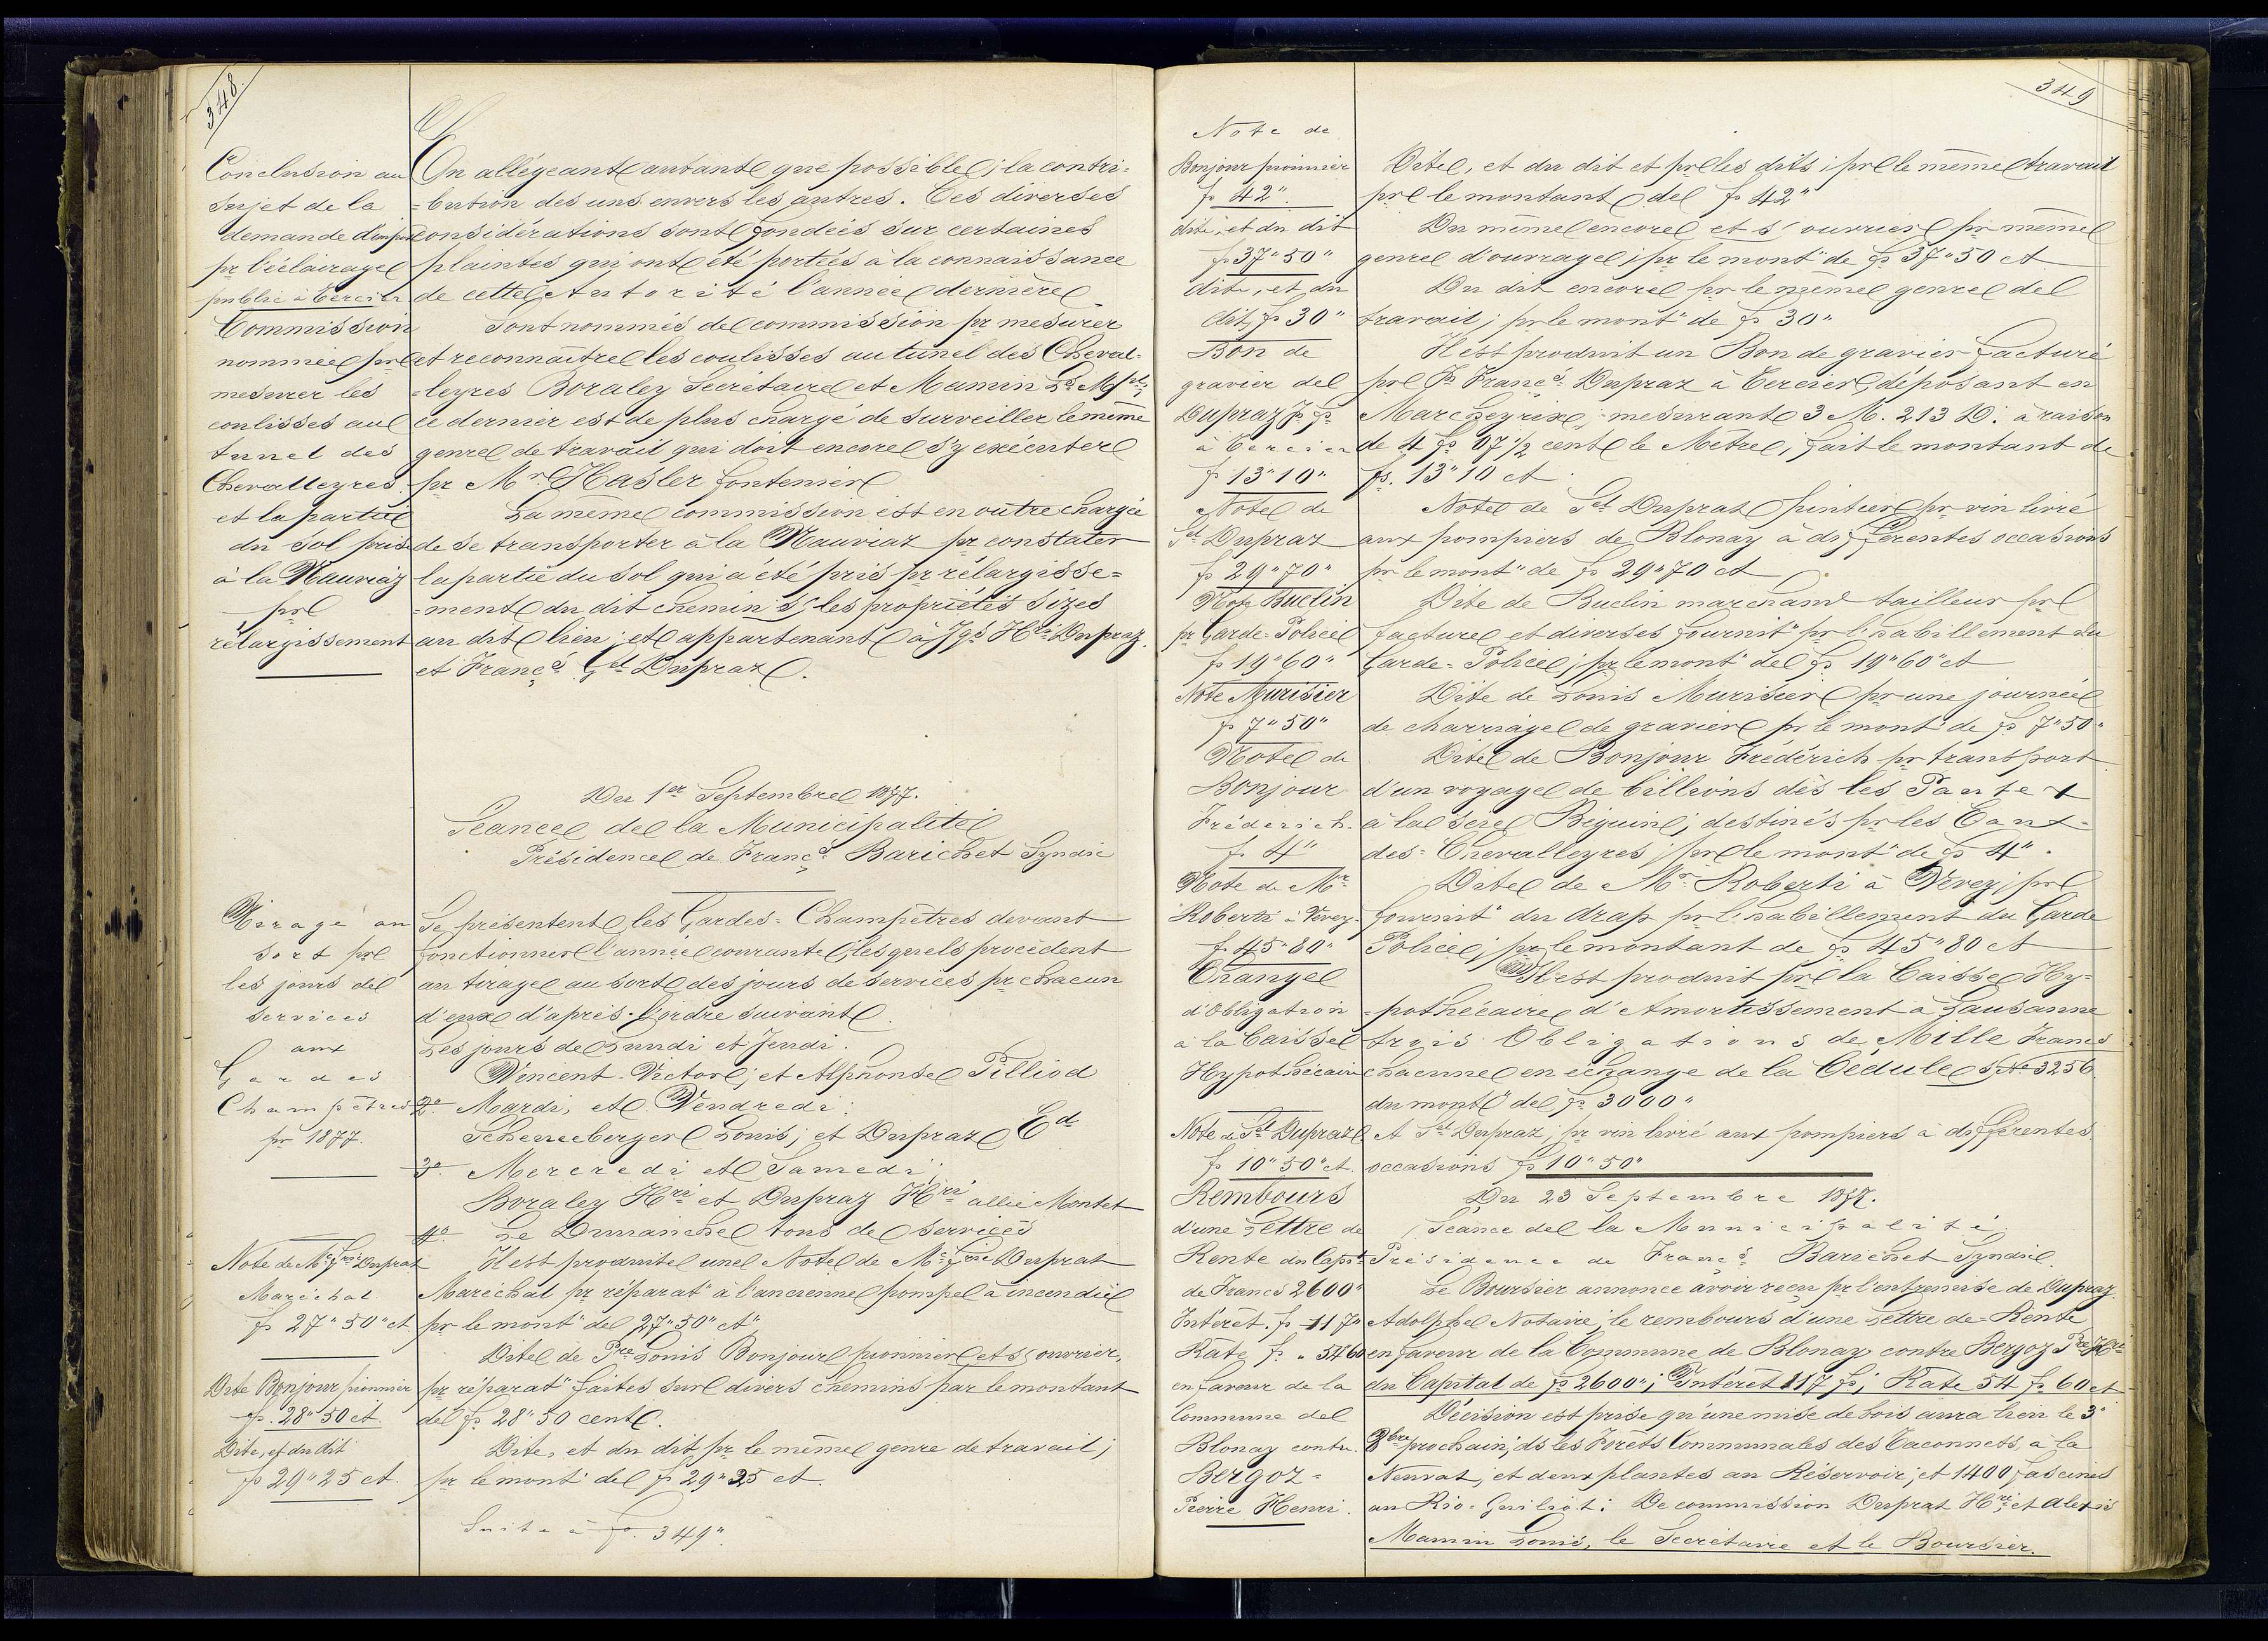 348.
Conclusion au
sujet de la
demande d'impôt
pr l'éclairage
public à Cercier
Commission
nommée pr
mesurer les
coulisses au
tunel des
Chevalleyres
et la partie
du sol prise
à la Mauriaz
pr
rélargissement
En allégeant autant que possible; la contri-
-bution des uns envers les autres. Ces diverses
considérations sont fondées sur certaines
plaintes qui ont été portées à la connaissance
de cette Autorité l'année dernière
Sont nommés de commission pr mesurer
et reconnaître les coulisses au tunel des Cheval-
-leyres Boraley Secrétaire et Mamin Ls Mpl;
ce dernier est de plus chargé de surveiller le même
genre de travail qui doit encore s'y exécuter
pr Mr Hasler fontenier
La même commission est en outre chargée
de se transporter à la Mauriaz pr constater
la partie du sol qui a été pris pr rélargisse=
=ment du dit chemin s/ les propriétés sizes
au dit lieu; et appartenant à Jqs Hri Dupraz
et Franç.s Gel Dupraz.
Du 1er Septembre 1877.
Séance de la Municipalité
Présidence de Franç.s Barichet Syndic
Tirage au
sort pr
les jours de
services
aux
Gardes
Champêtres
pr 1877.
Se présentent les Gardes-Champêtres devant
fonctionner l'année courante, lesquels procèdent
au tirage au sort des jours de services pr chacun
d'eux d'après l'ordre suivant.
Les jours de Lundi et Jeudi.
Vincent Victor; et Alphonse Pilliod
2o Mardi, et Vendredi:
Scheneeberger Louis; et Dupraz Ed
3o Mercredi et Samedi;
Boraley Hri et Dupraz Hri allié Montet
4o Le Dimanche tous de services
Note de Mc Fris Duprat
Maréchal
fs 27"50"ct
Il est produite une Note de Mc Fris Duprat
Maréchal pr réparat" à l'ancienne pompe à incendie
pr le mont" de 27"50"ct"
Dite Bonjour pionnier
fs. 28"50 ct.
Dite de Pre Louis Bonjour pionnier et s/ ouvrier,
pr réparat" faites sur divers chemins par le montant
de fs 28"50 cent.
Dite, et du dit
fs 29"25 ct.
Dite, et du dit, pr le même genre de travail;
pr le mont" de fs 29"25 ct.
Suite à fo. 349".
349
Note de
Bonjour pionnier
fs 42".
Dite, et du dit et pr les dits; pr le même travail
pr le montant de fs 42"
dite, et du dit
fs 37"50"
Du même encore et s/ ouvrier pr même
genre d'ouvrage; pr le mont" de fs 37"50 ct
dite, et du
dit, fs 30"
Du dit encore pr le même genre de
travail; pr le mont" de fs 30"
Bon de
gravier de
Dupraz Js Fs
à Cercier
fs 13"10"
Il est produit un Bon de gravier facturé
pr Js Franç.s Dupraz à Cercier, déposant en
Marcheyrix; mesurant 3 M. 213 D. à raison
de 4 fs 07 1/2 cent le Mètre, fait le montant de
fs. 13"10 ct.
Note de
Sel Dupraz
fs 29"70"
Note de Sel Dupraz pintier pr vin livré
aux pompiers de Blonay à différentes occasions
pr le mont" de fs 29"70 ct
Note Buclin
pr Garde-Police
fs 19"60"
Dite de Buclin marchand tailleur pr
facture et diverses fournit" pr l'habillement du
Garde-Police; pr le mont" de fs 19"60"ct
Note Murisier
fs 7"50"
Dite de Louis Murisier pr une journée
de charriage de gravier pr le mont" de fs 7"50"
Note de
Bonjour
Fréderich.
fs 4"
Dite de Bonjour Fréderich pr transport
d'un voyage de billions dès les Pautex
à la scie Biguin; destinés pr les Eaux-
des-Chevalleyres; pr le mont" de fs 4".
Note de Mr
Roberti à Vevey
fs 45"80"
Dite de Mr. Roberti à Vevey; pr
fournit" du drap pr l'habillement du Garde
Police; pr le montant de fs 45"80 ct
Change
d'Obligation
à la Caisse
Hypothécaire
Il est produit pr la Caisse Hy-
-pothécaire d'Amortissement à Lausanne
trois Obligations de Mille Francs
chacune en échange de la Cédule s/ No 3256
du mont" de fs 3000"
Note de Sel Dupraz
fs 10"50"ct.
A Sel Dupraz; pr vin livré aux pompiers à différentes
occasions fs 10"50"
Du 23 Septembre 1877.
Séance de la Municipalité
Présidence de Franç.s Barichet Syndic
Rembours
d'une Lettre de
Rente du Capit.
de Francs 2600"
Intérêt. fs 117"
Rate fs. " 54 60
en faveur de la
Commune de
Blonay contre
Bergoz-
Pierre Henri.
Le Boursier annonce avoir reçu pr l'entremise de Dupraz
Adolphe Notaire, le rembours d'une Lettre de Rente
en faveur de la Commune de Blonay contre Bergoz Pre Hri
du Capital de fs 2600"; Intérêt 117 fs; Rate 54 fs 60 ct
Décision est prise qu'une mise de bois aura lieu le 3"
8bre prochain; ds les Forêts Communales des Caconnets, à la
Neuvat, et deux plantes au Réservoir; et 1400 fascines
au Rio-Guiliot: De commission Duprat Hri; et Alexis
Mamin Louis, le Secrétaire et le Boursier.